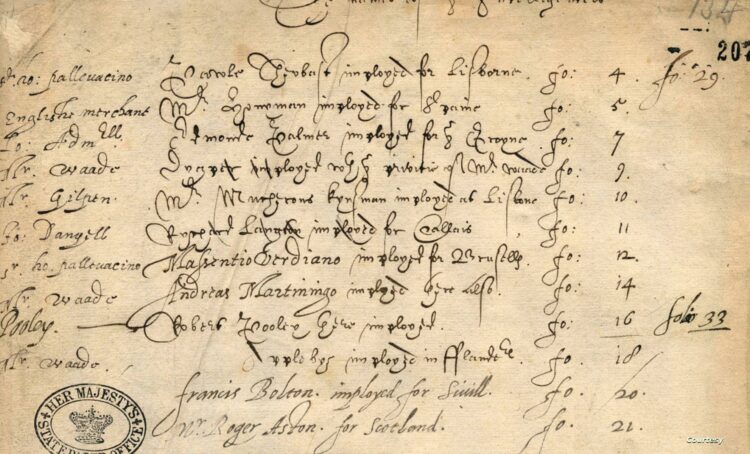 134
207
Sr. ho: pallevacino Carole Thybast imployed for Lisborne fo: 4. fo: 29.
Englishe merchant Mr. Howman imployed for Spaine fo: 5.
Lo: Admll. Edmonde Palmer imployed for ye Groyne. fo: 7
Mr. Waade imployed wth ye privitie of Mr. Waade fo: 9.
Mr. Gilpen. Mr. kynsman imployed at Lisbone fo: 10.
Jo: Dangell Rychard Langton imployed for Callais, fo: 11
Sr. ho. pallevacino Massentio Verdiano imployed for Brusells fo: 12
Mr. Waade Andreas Martiningo imployed here fo. 14
Pooley. Robert Pooley here imployed. fo: 16 folio 33
Mr. Waade. imployed in fflanders fo. 18
Francis Bolton. imployed for Sivill. fo. 20.
Mr Roger Aston. for Scotland. fo. 21.
HER MAJESTY'S STATE PAPER OFFICE
Courtesy